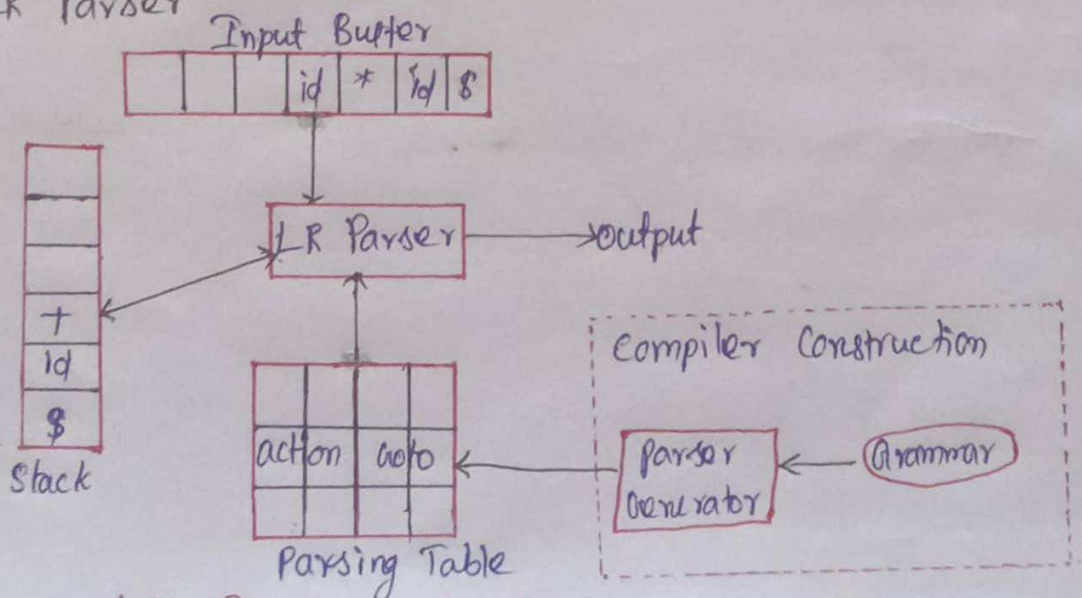 Parser
Input Buffer
id * id $
LR Parser
output
+
id
$
Stack
action Goto
Parsing Table
Compiler Construction
Parser
Generator
Grammar